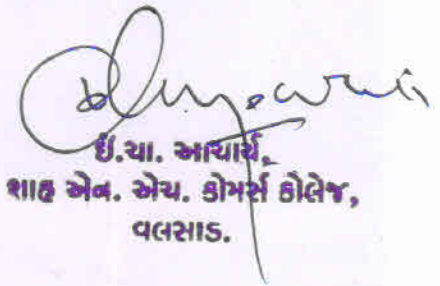 ઈ.ચા. આચાર્ય,
શાહ એન. એચ. કોમર્સ કોલેજ,
વલસાડ.